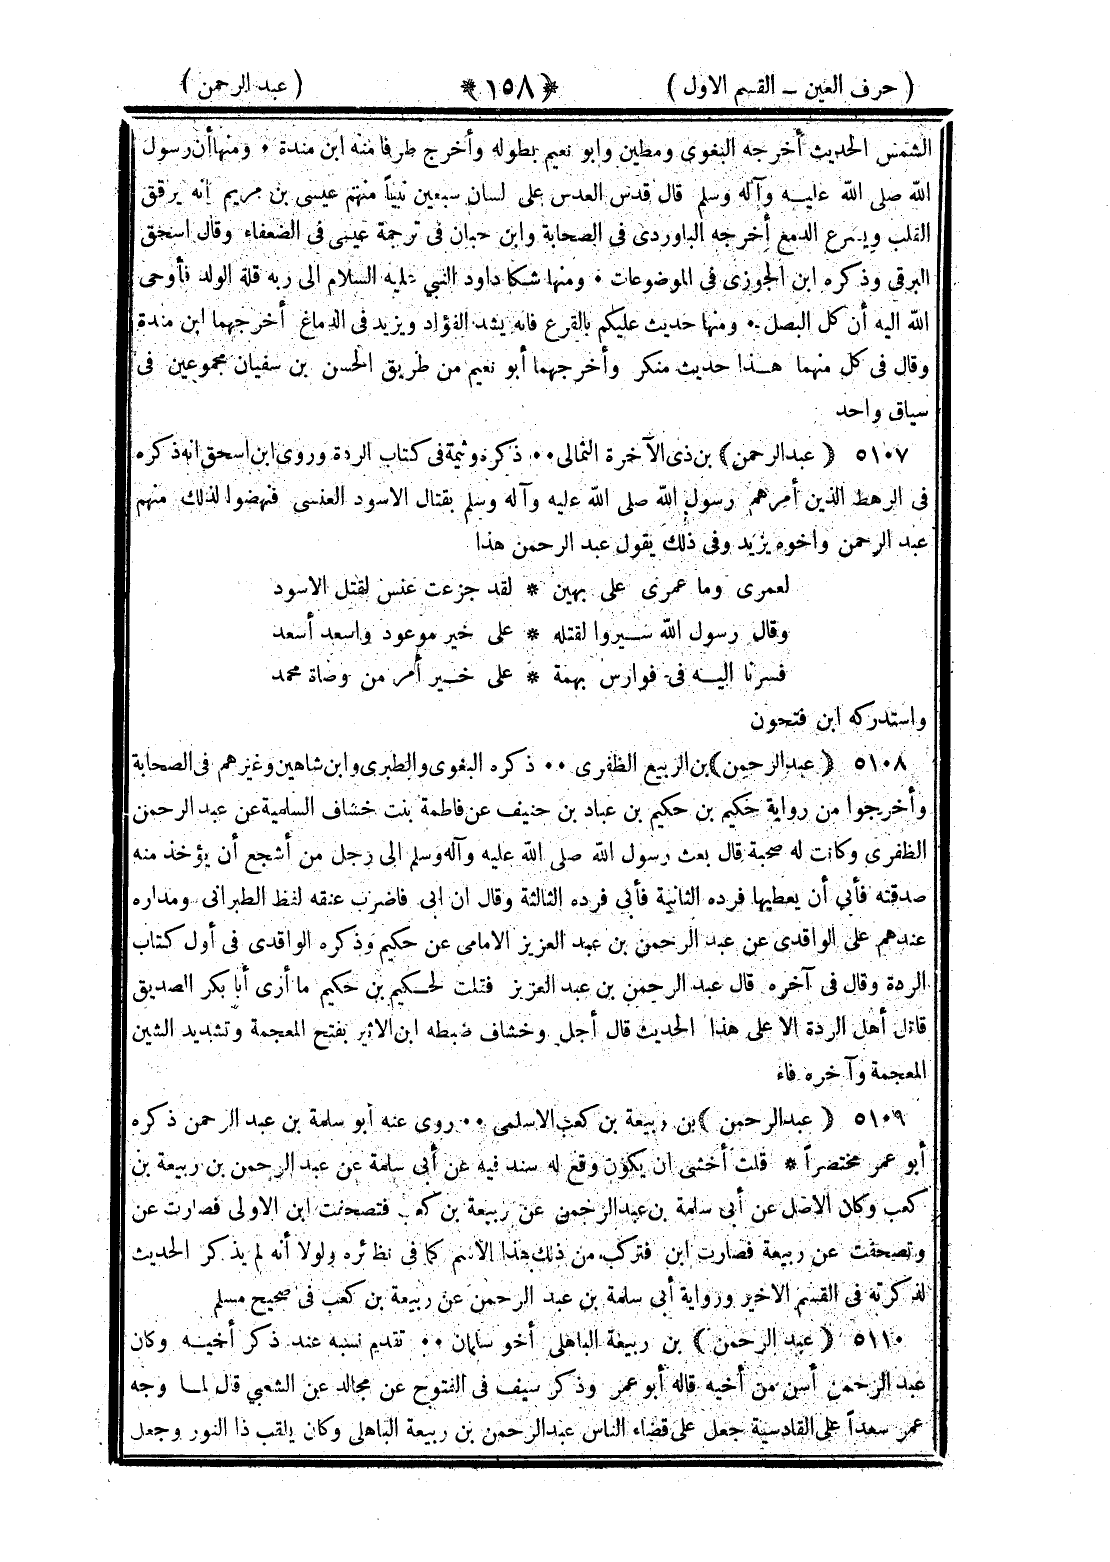 ( حرف العين – القسم الاول ) ﴿١٥٨﴾ ( عبد الرحمن )
الشمس الحديث أخرجه البغوى ومطين وابو نعيم بطوله وأخرج طرفا منه ابن مندة • ومنها أن رسول
الله صلى الله عليه وآله وسلم قال قدس العدس على لسان سبعين نبياً منهم عيسى بن مريم انه يرقق
القلب ويسرع الدمع أخرجه الباوردى فى الصحابة وابن حبان فى ترجمة عيسى فى الضعفاء وقال اسحق
البرقى وذكره ابن الجوزى فى الموضوعات • ومنها شكا داود النبي عليه السلام الى ربه قلة الولد فأوحى
الله اليه أن كل البصل • ومنها حديث عليكم بالقرع فانه يشد الفؤاد ويزيد فى الدماغ أخرجهما ابن مندة
وقال فى كل منهما هذا حديث منكر وأخرجهما أبو نعيم من طريق الحسن بن سفيان مجموعين فى
سياق واحد
٥١٠٧ ( عبدالرحمن ) بن ذى الآخرة الثمالى •• ذكره وثيمة فى كتاب الردة وروى ابن اسحق انه ذكره
فى الرهط الذين أمرهم رسول الله صلى الله عليه وآله وسلم بقتال الاسود العنسى فنهضوا لذلك منهم
عبد الرحمن واخوه يزيد وفى ذلك يقول عبد الرحمن هذا
لعمرى وما عمرى على بهين * لقد جزعت عنس لقتل الاسود
وقال رسول الله سيروا لقتله * على خير موعود واسعد أسعد
فسرنا اليه فى فوارس بهمة * على خير أمر من وصاة محمد
واستدركه ابن فتحون
٥١٠٨ ( عبدالرحمن ) بن الربيع الظفرى •• ذكره البغوى والطبرى وابن شاهين وغيرهم فى الصحابة
وأخرجوا من رواية حكيم بن حكيم بن عباد بن حنيف عن فاطمة بنت خشاف السلمية عن عبد الرحمن
الظفرى وكانت له صحبة قال بعث رسول الله صلى الله عليه وآله وسلم الى رجل من أشجع أن يؤخذ منه
صدقته فأبي أن يعطيها فرده الثانية فأبى فرده الثالثة وقال ان ابى فاضرب عنقه لفظ الطبرانى ومداره
عندهم على الواقدى عن عبد الرحمن بن عبد العزيز الامامى عن حكيم وذكره الواقدى فى أول كتاب
الردة وقال فى آخره قال عبد الرحمن بن عبد العزيز فقلت لحكيم بن حكيم ما أرى أبا بكر الصديق
قاتل أهل الردة الا على هذا الحديث قال أجل وخشاف ضبطه ابن الاثير بفتح المعجمة وتشديد الشين
المعجمة وآخره فاء
٥١٠٩ ( عبدالرحمن ) بن ربيعة بن كعب الاسلمى •• روى عنه أبو سلمة بن عبد الرحمن ذكره
أبو عمر مختصراً * قلت أخشى ان يكون وقع له سند فيه عن أبى سلمة عن عبد الرحمن بن ربيعة بن
كعب وكان الاصل عن أبى سلمة بن عبدالرحمن عن ربيعة بن كعب فتصحفت ابن الاولى فصارت عن
وتصحفت عن ربيعة فصارت ابن فتركب من ذلك هذا الاسم كما فى نظائره ولولا أنه لم يذكر الحديث
لذكرته فى القسم الاخير ورواية أبى سلمة بن عبد الرحمن عن ربيعة بن كعب فى صحيح مسلم
٥١١٠ ( عبد الرحمن ) بن ربيعة الباهلى أخو سلمان •• تقديم نسبه عند ذكر أخيه وكان
عبد الرحمن أسن من أخيه قاله أبو عمر وذكر سيف فى الفتوح عن مجالد عن الشعبي قال لما وجه
عمر سعداً على القادسية جعل على قضاء الناس عبدالرحمن بن ربيعة الباهلى وكان يلقب ذا النور وجعل